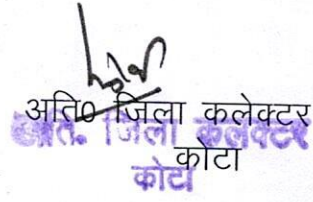 अति० जिला कलेक्टर
अति. जिला कलेक्टर
कोटा
कोटा